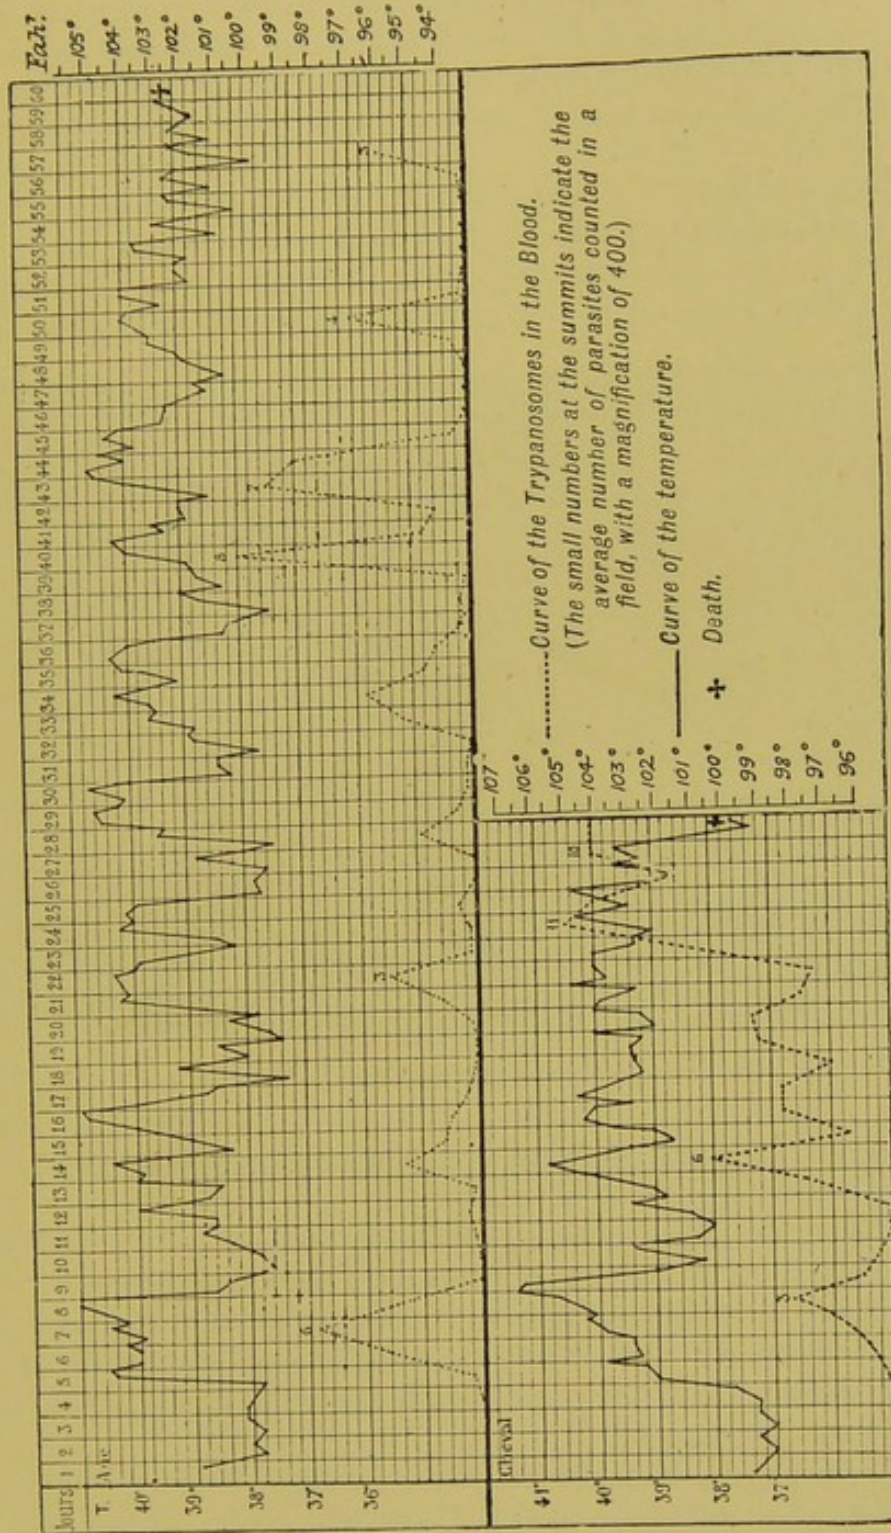 Jours 1 2 3 4 5 6 7 8 9 10 11 12 13 14 15 16 17 18 19 20 21 22 23 24 25 26 27 28 29 30 31 32 33 34 35 36 37 38 39 40 41 42 43 44 45 46 47 48 49 50 51 52 53 54 55 56 57 58 59 60
T.
40°
39°
38°
37
36°
6
3
8
7
4
3
105°
104°
103°
102°
101°
100°
99°
98°
97°
96°
95°
94°
Cheval
41°
40°
39°
38°
37
6
11
10
107
106°
105°
104°
103°
102°
101°
100°
99°
98°
97°
96°
Curve of the Trypanosomes in the Blood.
(The small numbers at the summits indicate the
average number of parasites counted in a
field, with a magnification of 400.)
Curve of the temperature.
Death.